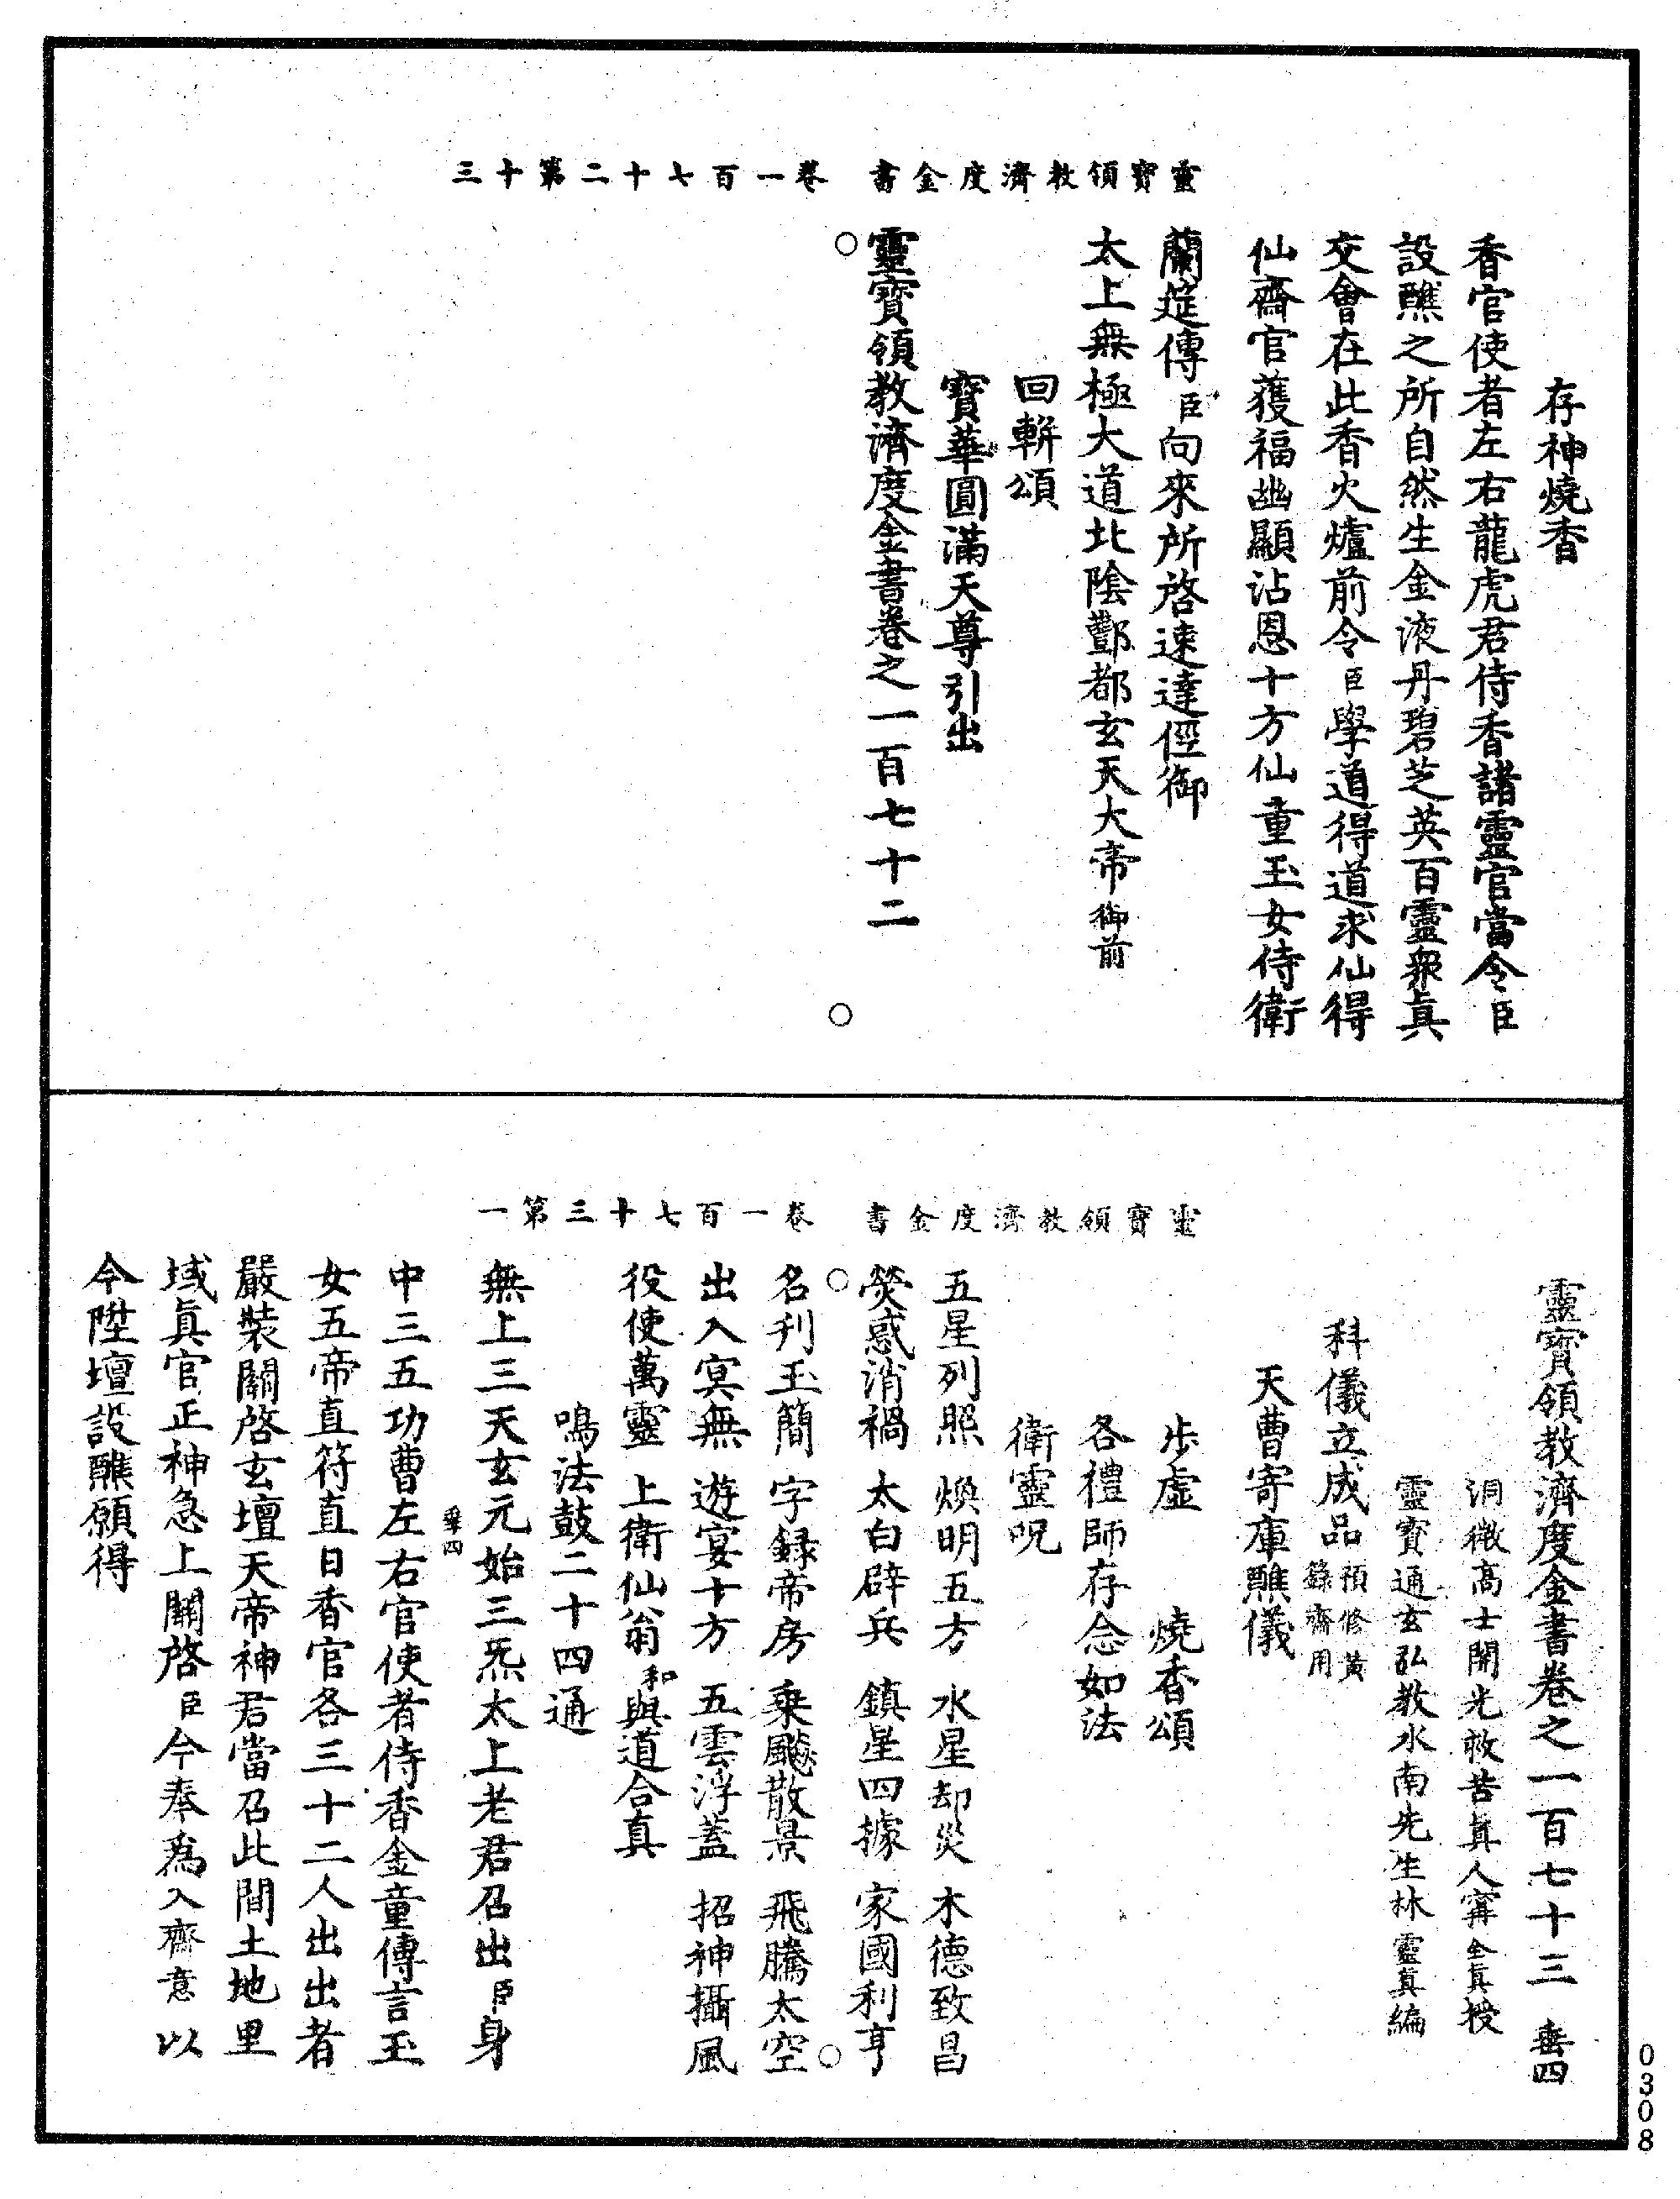 存神燒香
香官使者左右龍虎君侍香諸靈官當令臣
設醮之所自然生金液丹碧芝英百靈眾真
交會在此香火爐前令臣學道得道求仙得
仙齋官獲福幽顯沾恩十方仙童玉女侍衛
蘭𨓍傳臣向來所啓速達徑御
太上無極大道北陰酆都玄天大帝御前
回軿頌
寶華圓滿天尊引出
靈寶領教濟度金書卷之一百七十二
靈寶領教濟度金書 卷一百七十二第十三
靈寶領教濟度金書卷之一百七十三 𡍼四
洞微高士開光救苦真人甯全真授
靈寶通玄弘教水南先生林靈真編
科儀立成品預修黃籙齋用
天曹寄庫醮儀
步虛 燒香頌
各禮師存念如法
衛靈呪
五星列照 煥明五方 水星却災 木德致昌
熒惑消禍 太白辟兵 鎮星四據 家國利亨
名刋玉簡 字錄帝房 乘飇散景 飛騰太空
出入冥無 遊宴十方 五雲浮蓋 招神攝風
役使萬靈 上衛仙翁和與道合真
鳴法鼓二十四通
無上三天玄元始三炁太上老君召出臣身
中三五功曹左右官使者侍香金童傳言玉
女五帝直符直日香官各三十二人出出者
嚴裝關啓玄壇天帝神君當召此間土地里
域真官正神急上關啓臣今奉為入齋意以
今陞壇設醮願得
靈寶領教濟度金書 卷一百七十三第一
0308